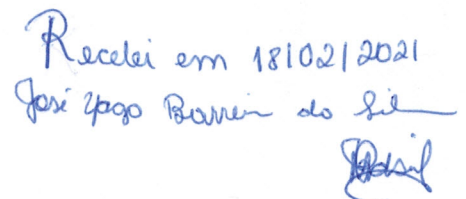 Recebi em 18/02/2021
José Yago Barreir do Silva